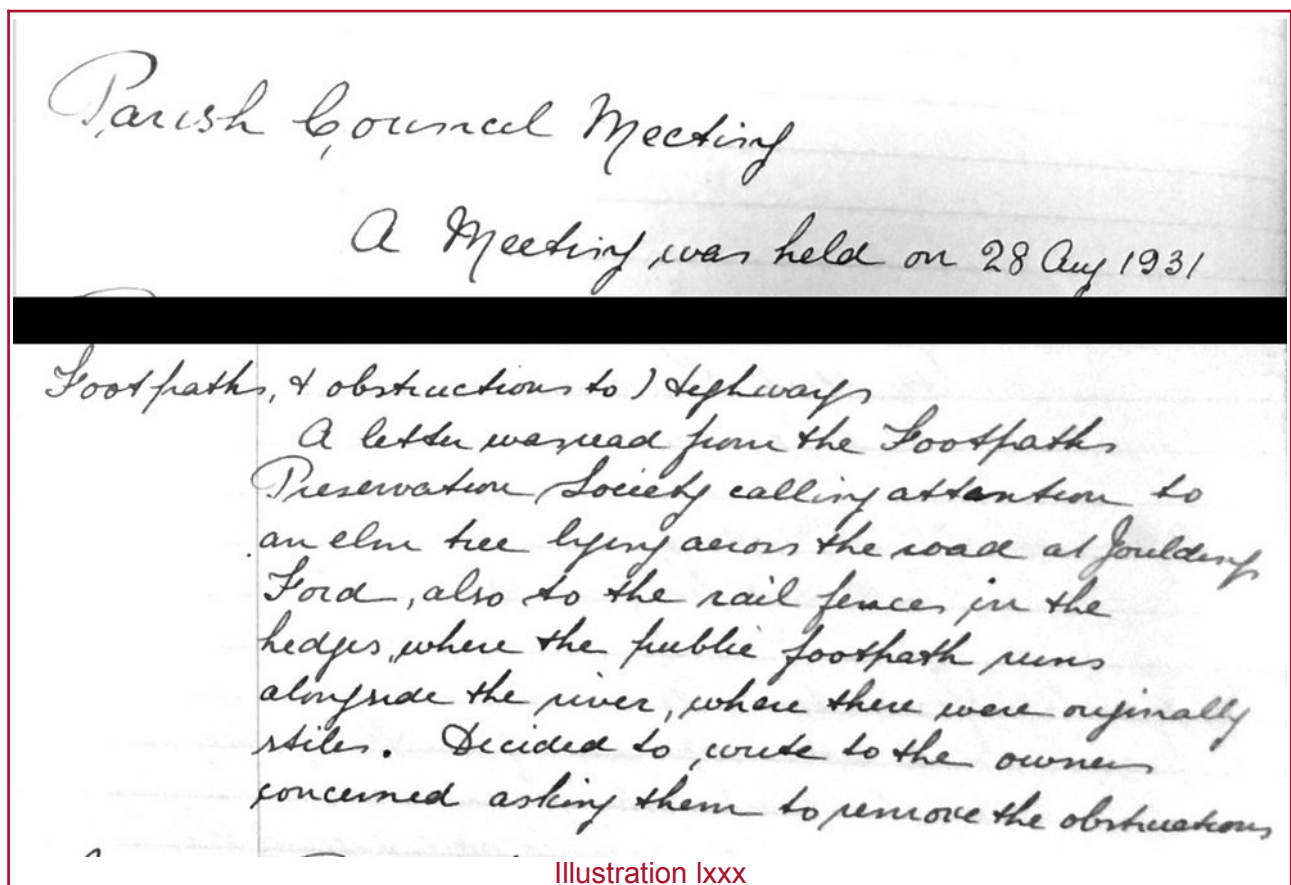 Parish Council Meeting
A Meeting was held on 28 Aug 1931
Footpaths, & obstructions to) Highways
A letter was read from the Footpaths
Preservation Society calling attention to
an elm tree lying across the road at Jouldings
Ford, also to the rail fences in the
hedges, where the public footpath runs
alongside the river, where there were originally
stiles. Decided to write to the owners
concerned asking them to remove the obstructions
Illustration lxxx